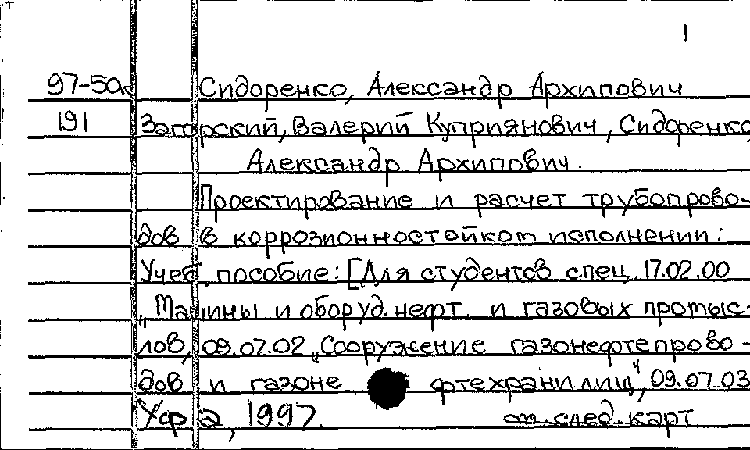 1
97-50к Сидоренко, Александр Архипович
191 Загорский, Валерий Куприянович, Сидоренко
Александр Архипович.
Проектирование и расчет трубопрово-
дов в коррозионностойком исполнении:
Учеб. пособие: [Для студентов спец. 17.02.00
„Машины и оборуд. нефт. и газовых промыс-
лов, 09.07.02 „Сооружение газонефтепрово-
дов и газоне фтехранилищ“, 09.07.03
Уфа, 1997. см. след. карт